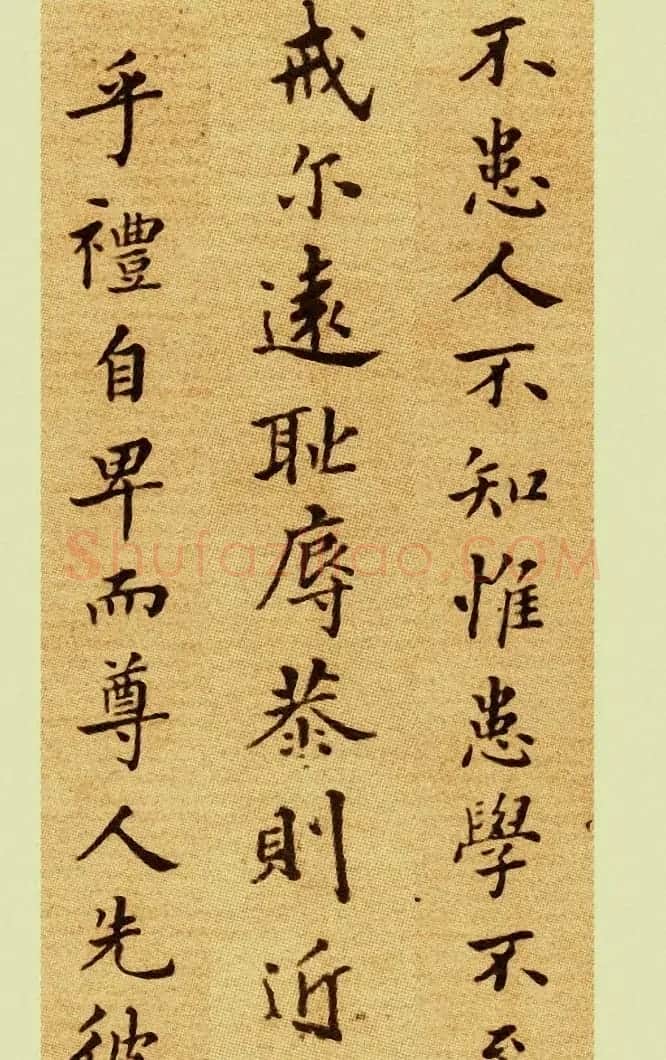 不患人不知惟患學不至
戒尔遠恥辱恭則近
乎禮自卑而尊人先彼
Shufaziliao.COM